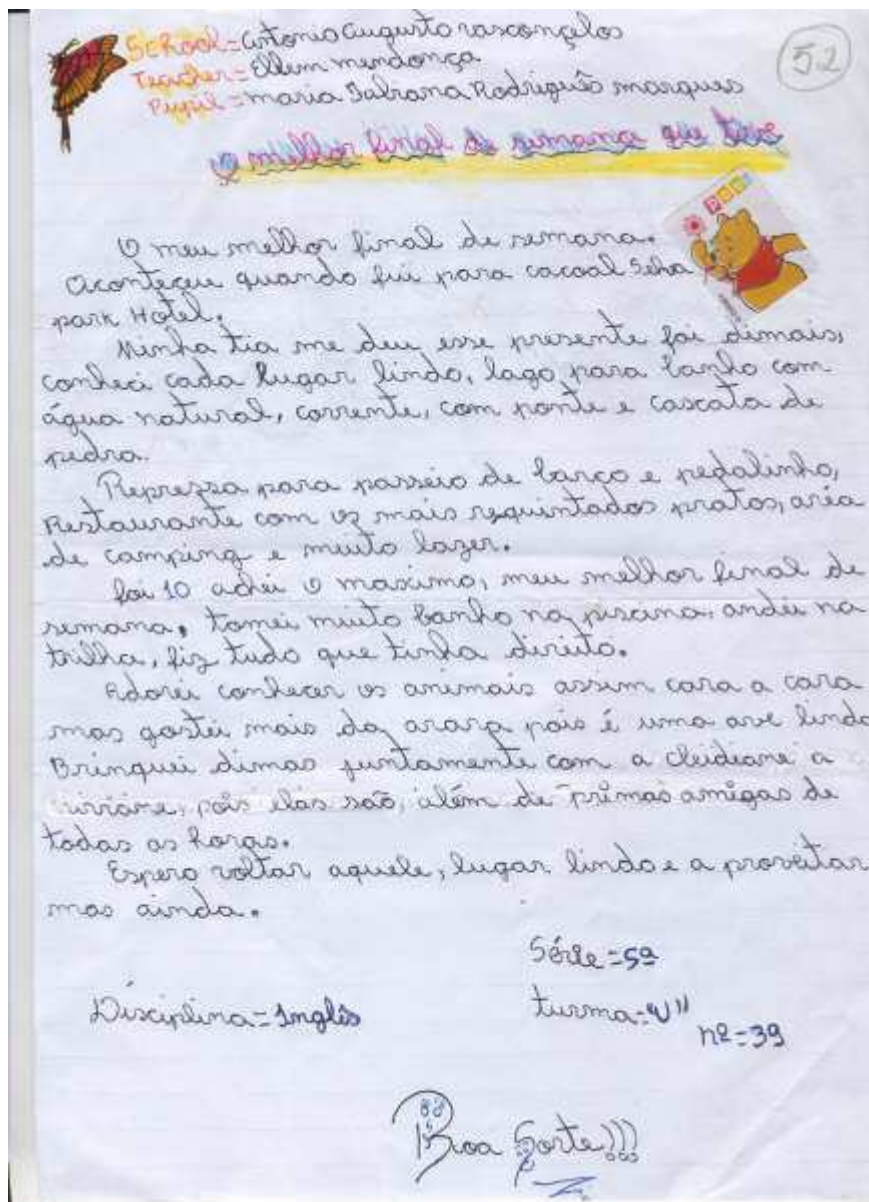 School = Antonio Augusto vasconçelos
Teacher = Ellem mendonça
Pupil = maria Fabiana Rodriguês marques
52
O melhor final de semana que tive
POOH
O meu melhor final de semana.
Aconteçeu quando fui para cacoal Selva
park Hotel.
Minha tia me deu esse presente foi dimais,
conheci cada lugar lindo, lago para banho com
água natural, corrente, com ponte e cascata de
pedra.
Reprezsa para passeio de barço e pedalinho,
Restaurante com os mais requintados pratos, aréa
de camping e muito lazer.
foi 10 achei o maximo, meu melhor final de
semana. tomei muito banho na piscina, andei na
trilha, fiz tudo que tinha direito.
Adorei conhecer os animais assim cara a cara
mas gostei mais da arara pois é uma ave linda
Brinquei dimas juntamente com a Cleidiane a
pois elas são, além de primas amigas de
todas as horas.
Espero voltar aquele, lugar lindo e a proveitar
mas ainda.
Série = 5ª
Disciplina = Inglês
turma = "U"
nº = 39
Boa Sorte!!!